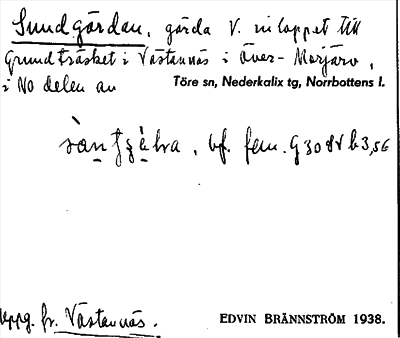 Sundgårdan, gårda V. inloppet till
Grundträsket i Västannäs i Över-Morjärv,
i NO delen av Töre sn, Nederkalix tg, Norrbottens l.
bf. fem. G3084 b3,56
uppg. fr. Västannäs.
EDVIN BRÄNNSTRÖM 1938.